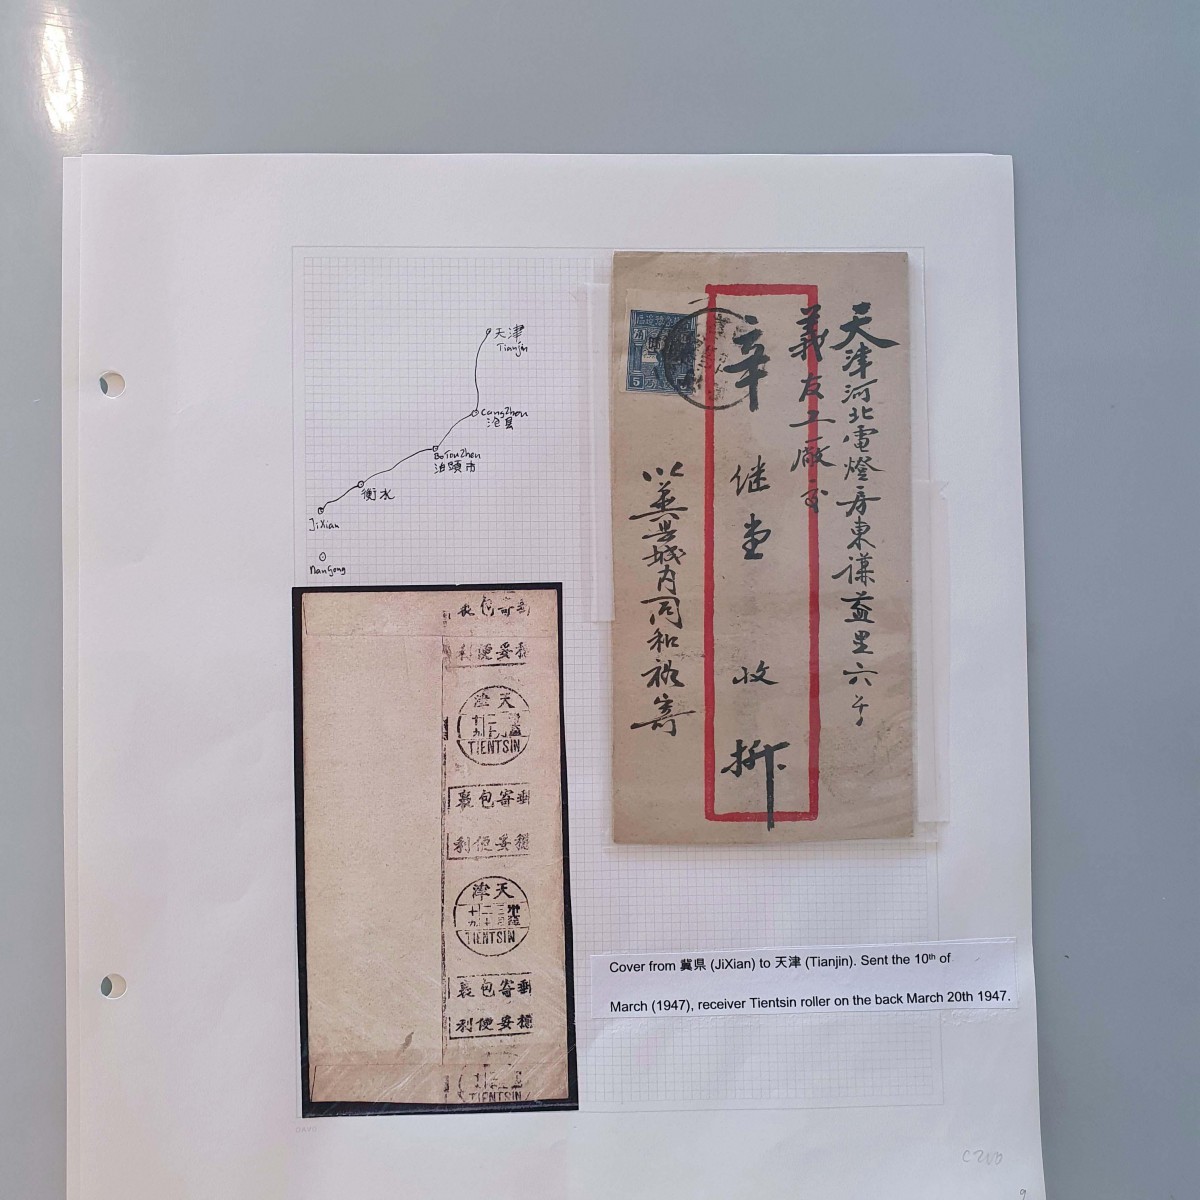 天津
Tianjin
CangZhou
沧县
BoTouZhen
泊頭市
衡水
JiXian
NanGong
5
天津河北電燈房東謙益里六号
義友工廠交
辛继堂收拆
县城内同和裕寄
利便妥穩
天津
TIENTSIN
裹包寄郵
利便妥穩
天津
TIENTSIN
裹包寄郵
利便妥穩
TIENTSIN
Cover from 冀県 (JiXian) to 天津 (Tianjin). Sent the 10th of
March (1947), receiver Tientsin roller on the back March 20th 1947.
C200
9